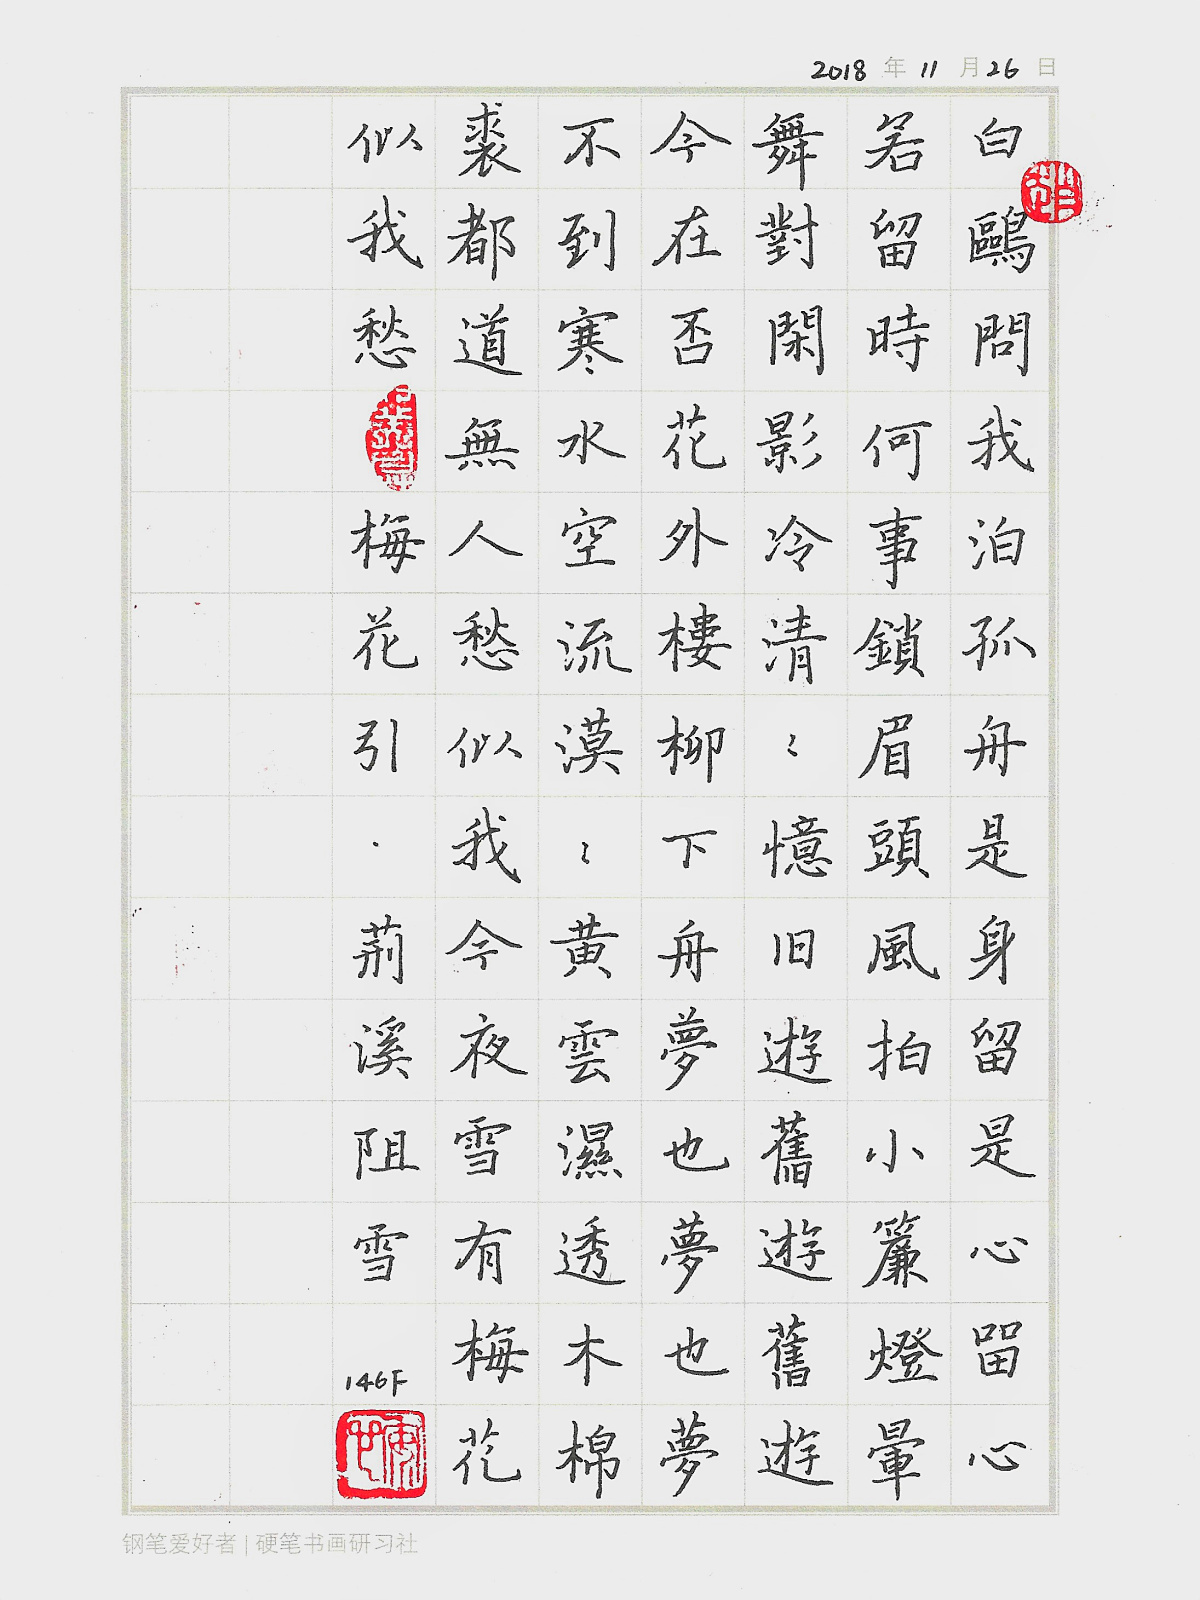 2018 年 11 月 26 日
白鷗問我泊孤舟是身留是心留心
若留時何事鎖眉頭風拍小簾燈暈
舞對閑影冷清〻憶旧遊舊遊舊遊
今在否花外樓柳下舟夢也夢也夢
不到寒水空流漠〻黃雲濕透木棉
裘都道無人愁似我今夜雪有梅花
似我愁 梅花引·荊溪阻雪
146F
钢笔爱好者 | 硬笔书画研习社